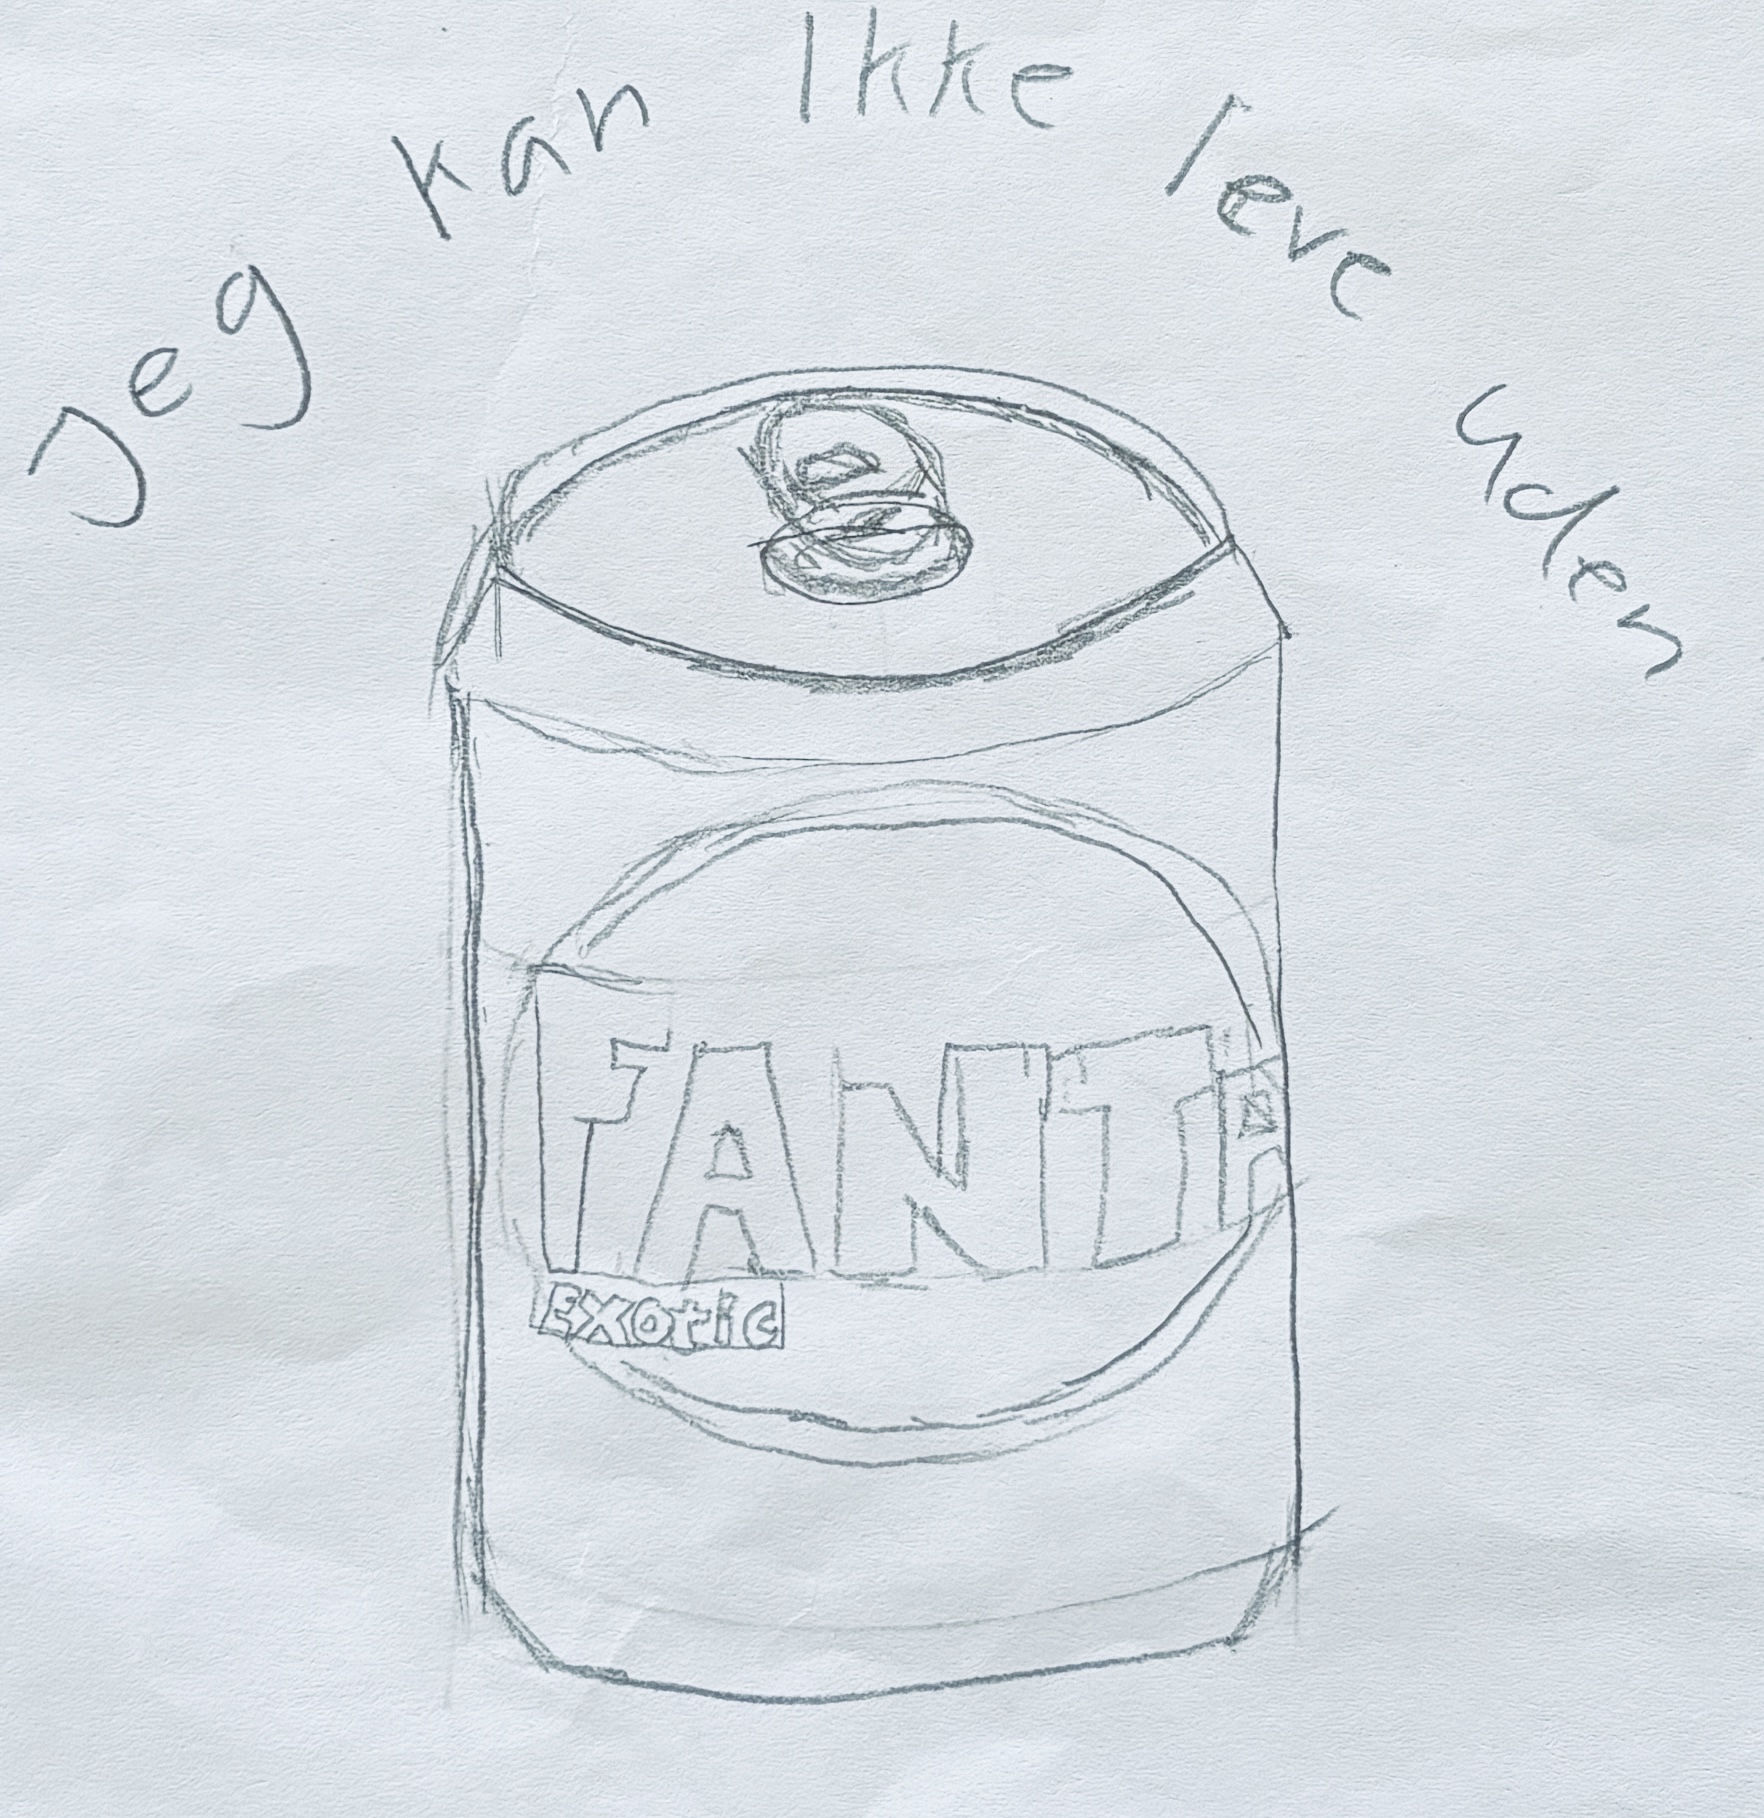 Jeg kan Ikke leve uden
FANTA
Exotic